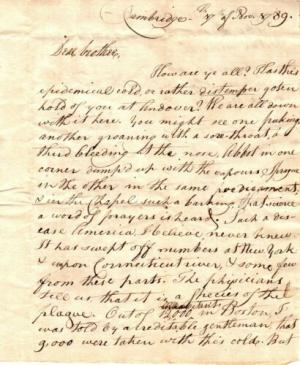 Cambridge. 7th of Nov. 1789.
Dear brother,
How are ye all? Has this
epidemical cold, or rather distemper gotten
hold of you at Andover? We are all down
with it here. You might see one puking,
another groaning with a sore throat, a
third bleeding at the nose, Abbot in one
corner dumped up with the vapours Sprague
in the other in the same predicament,
& in the Chapel such a barking, that scarce
a word of prayers is heard. Such a dis-
ease America, I believe, never knew.
It has swept off numbers at New York
& upon Connecticut river, & some few
from these parts. The physicians
tell us that it is a species of the
plague. Out of 12,000 inhabitants, in Boston, I
was told by a creditable gentleman that
9,000 were taken with this cold. But